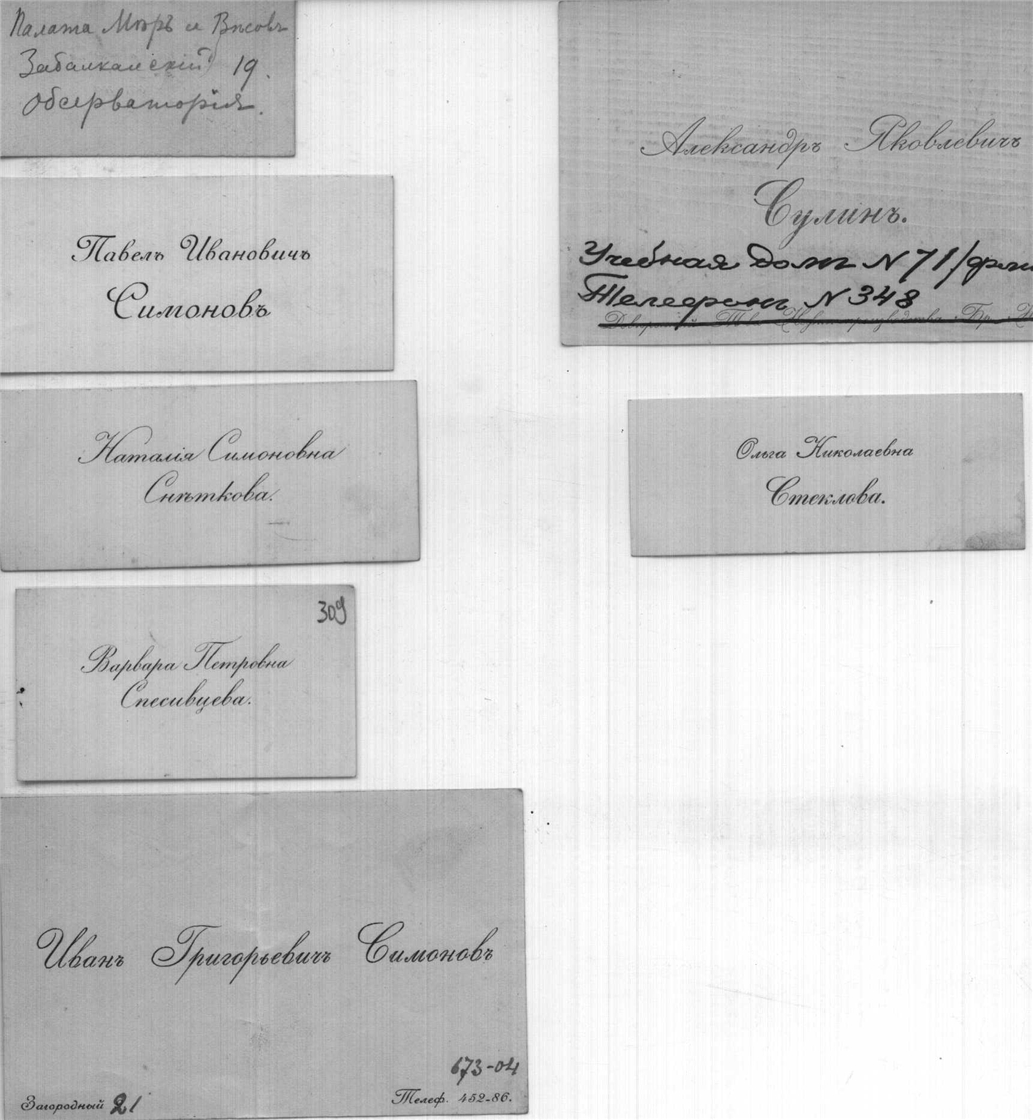 Палата Мѣръ и Вѣсовъ
Забалканскій 19.
Обсерваторія.
Павелъ Ивановичъ
Симоновъ
Наталія Симоновна
Снѣткова.
309
Варвара Петровна
Спесивцева.
Иванъ Григорьевичъ Симоновъ
673-04
Загородный 21
Телеф. 452-86.
Александръ Яковлевичъ
Сулинъ.
Учебная домъ N 71/
Телефонъ N 348
Ольга Николаевна
Стеклова.